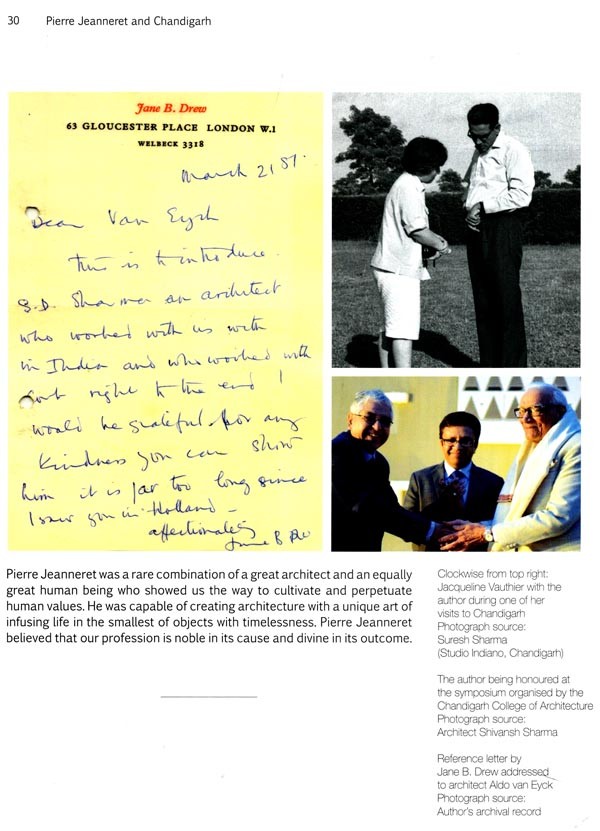 30 Pierre Jeanneret and Chandigarh
Jane B. Drew
63 GLOUCESTER PLACE LONDON W.1
WELBECK 3318
March 21 81.
Dear Van Eyck
This is to introduce
S.D. Sharma an architect
who worked with us with
in India and who worked with
right to the end I
would be grateful for any
kindness you can show
him it is far too long since
I saw you in Holland –
affectionately
Jane B Drew
Pierre Jeanneret was a rare combination of a great architect and an equally
great human being who showed us the way to cultivate and perpetuate
human values. He was capable of creating architecture with a unique art of
infusing life in the smallest of objects with timelessness. Pierre Jeanneret
believed that our profession is noble in its cause and divine in its outcome.
Clockwise from top right:
Jacqueline Vauthier with the
author during one of her
visits to Chandigarh
Photograph source:
Suresh Sharma
(Studio Indiano, Chandigarh)
The author being honoured at
the symposium organised by the
Chandigarh College of Architecture
Photograph source:
Architect Shivansh Sharma
Reference letter by
Jane B. Drew addressed
to architect Aldo van Eyck
Photograph source:
Author's archival record